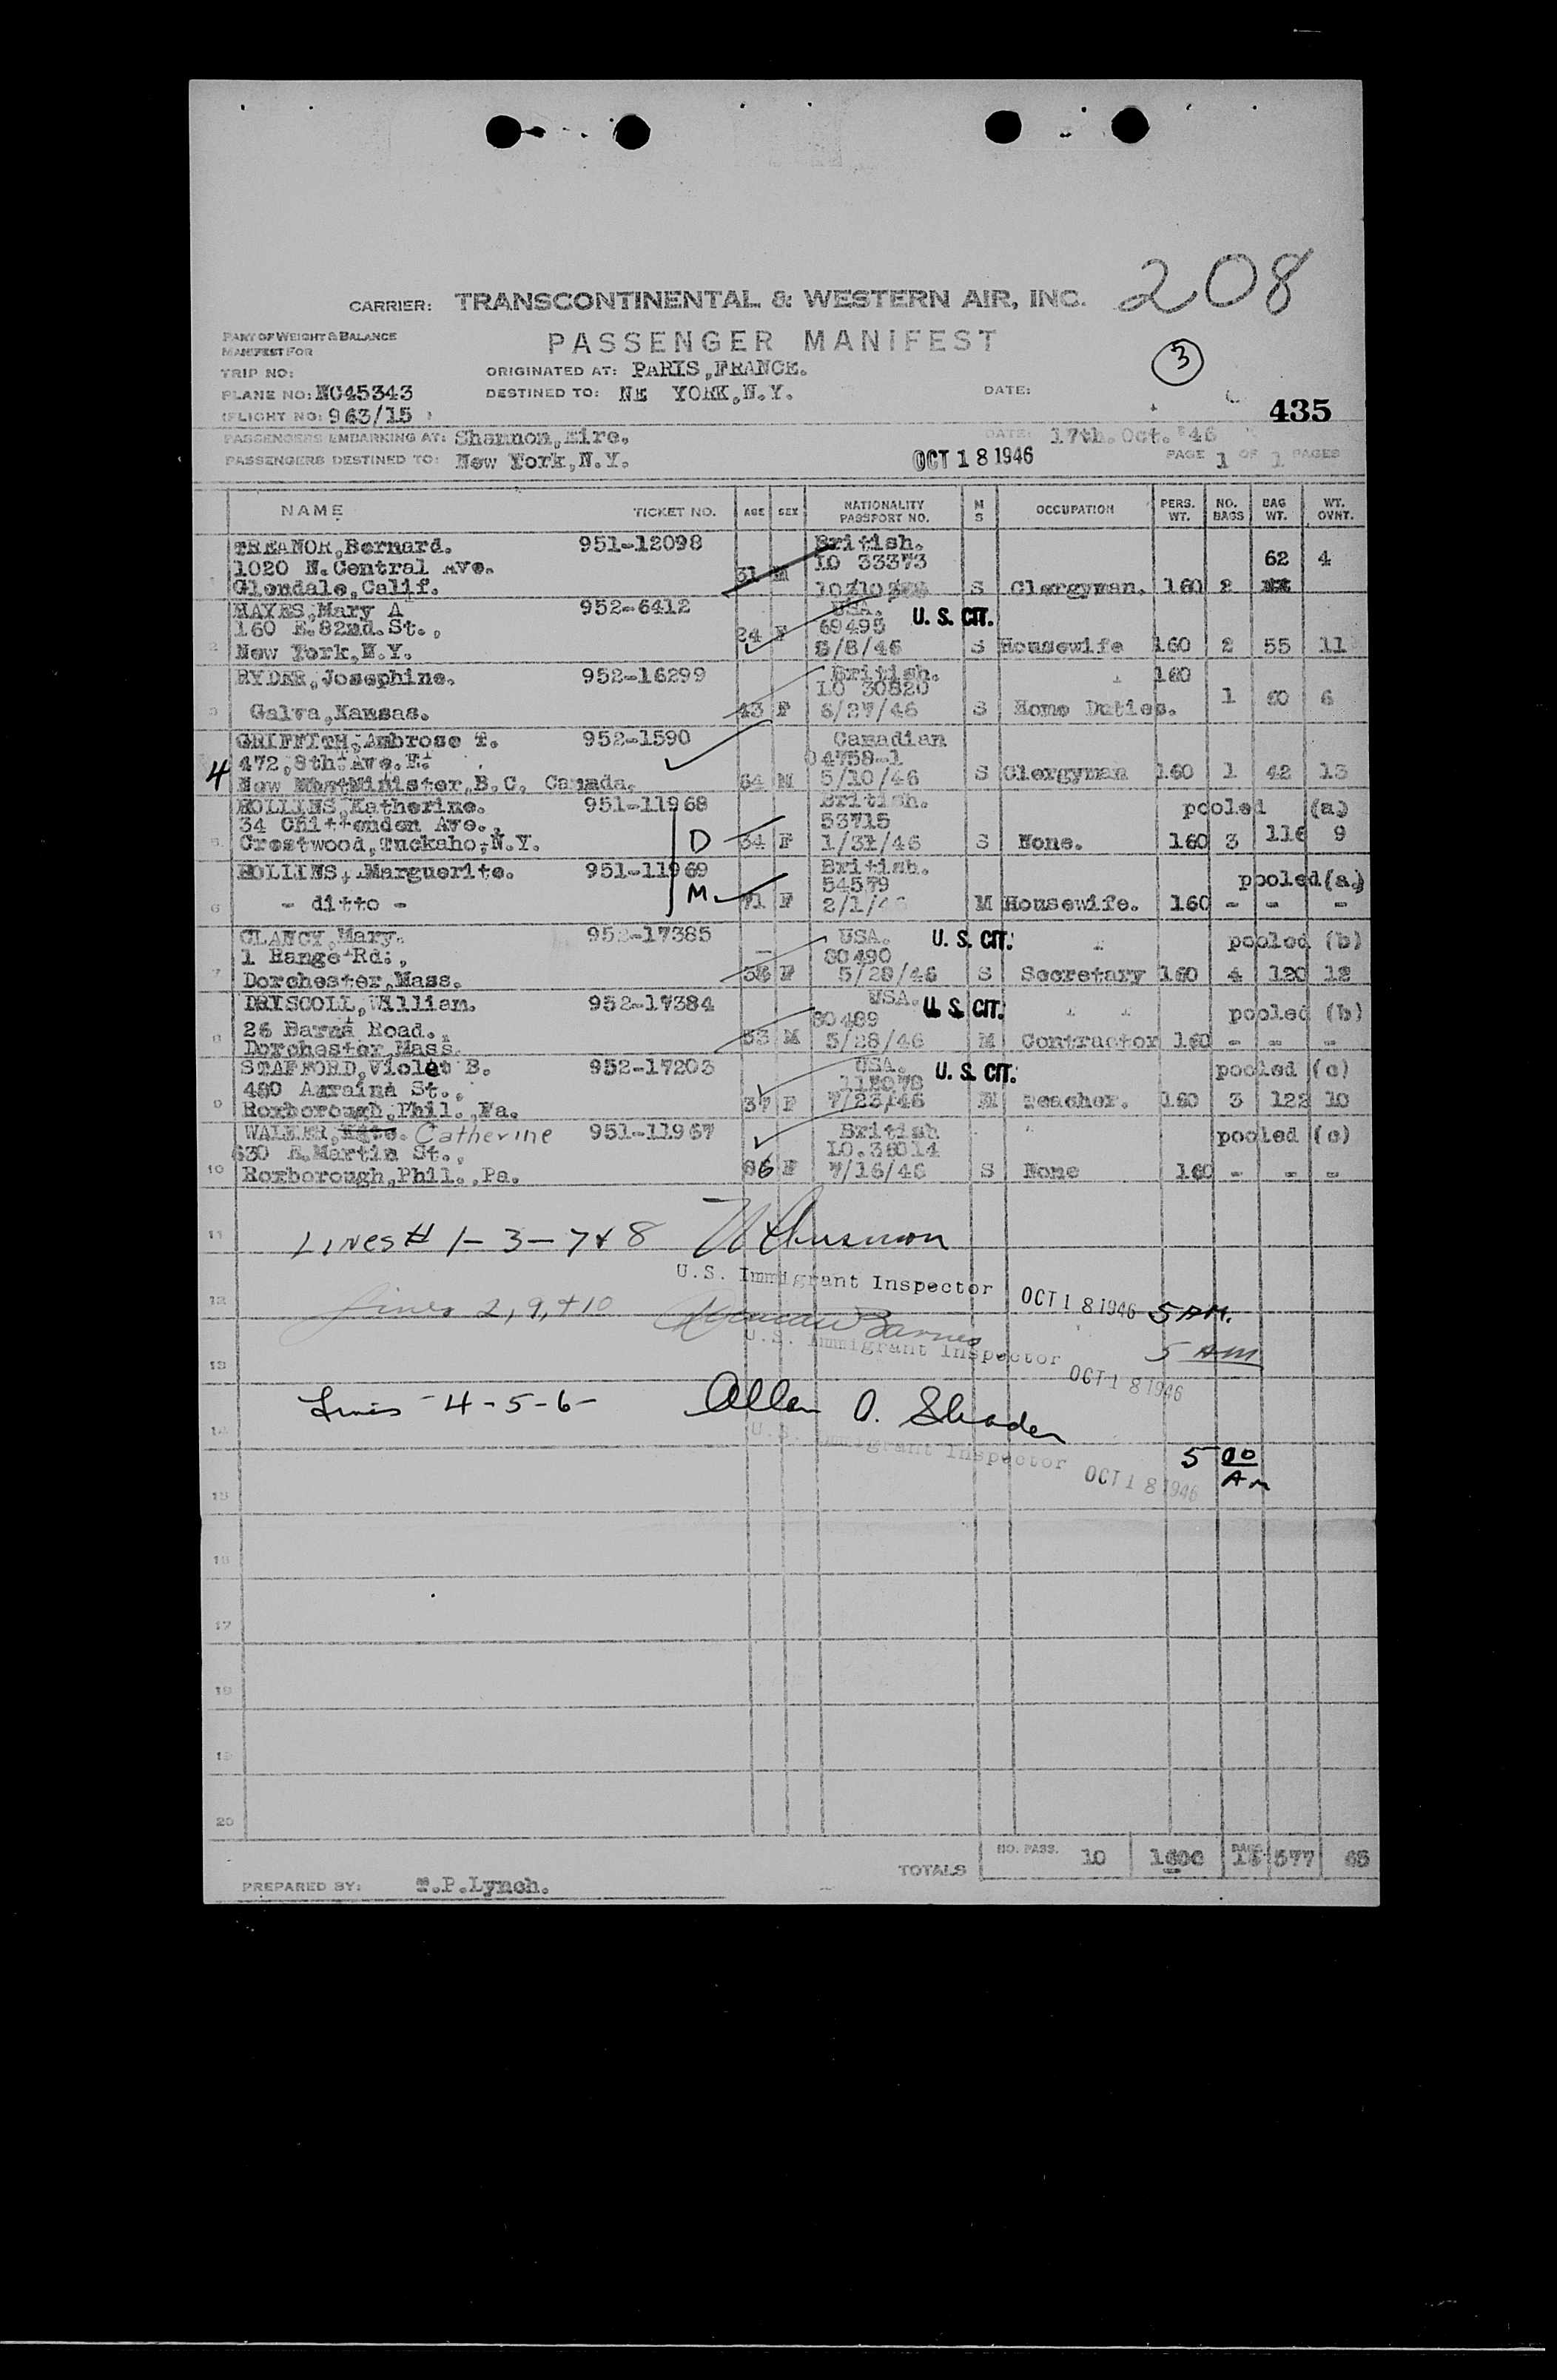 208
CARRIER: TRANSCONTINENTAL & WESTERN AIR, INC.
PART OF WEIGHT & BALANCE
MANIFEST FOR
PASSENGER MANIFEST
3
TRIP NO:
ORIGINATED AT: PARIS,FRANCE.
PLANE NO: NC45343
DESTINED TO: NE YORK,N.Y.
DATE:
(FLIGHT NO: 963/15 )
435
PASSENGERS EMBARKING AT: Shannon,Eire.
DATE: 17th.Oct.'46
PASSENGERS DESTINED TO: New York,N.Y.
OCT 18 1946
PAGE 1 OF 1 PAGES
NAME TICKET NO. AGE SEX NATIONALITY PASSPORT NO. M S OCCUPATION PERS. WT. NO. BAGS BAG WT. WT. OVNT.
TREANOR,Bernard. 951-12098 British.
1020 N.Central Ave. LO 33373 62 4
1 Glendale,Calif. 31 M S Clergyman. 160 2
HAYES,Mary A 952-6412 USA. U. S. CIT.
160 E.82nd.St., 69495
2 New York,N.Y. 24 F 8/8/46 S Housewife 160 2 55 11
RYDER,Josephine. 952-16299 British. 160
LO 30820
3 Galva,Kansas. 43 F 6/27/46 S Home Duties. 1 60 6
GRIFFITH,Ambrose T. 952-1590 Canadian
4 472,8th.Ave.E. 04758-1
New Westminister,B.C. Canada. 64 M 5/10/46 S Clergyman 160 1 42 13
HOLLINS,Katherine. 951-11968 British. pooled (a)
34 Chittenden Ave., 53715
5 Crestwood,Tuckaho,N.Y. D 34 F 1/31/46 S None. 160 3 116 9
HOLLINS,.Marguerite. 951-11969 British. pooled(a)
54579
6 - ditto - M 71 F 2/1/46 M Housewife. 160 - - -
CLANCY,Mary. 952-17385 USA. U. S. CIT. pooled (b)
1 Range Rd., 80490
7 Dorchester,Mass. F 5/28/46 S Secretary 160 4 120 12
DRISCOLL,William. 952-17384 USA. U. S. CIT. pooled (b)
26 Barna Road., 80489
8 Dorchester,Mass. 53 M 5/28/46 M Contractor 160 - - -
STAFFORD,Violet B. 952-17203 USA. U. S. CIT. pooled (c)
480 St.,
9 Roxborough,Phil.,Pa. 37 F 7/23/46 M Teacher. 160 3 122 10
WALKER, Catherine 951-11967 British pooled (c)
630 E.Martin St., LO.36014
10 Roxborough,Phil.,Pa. 86 F 7/16/46 S None 160 - - -
11 Lines # 1-3-7&8
U.S. Immigrant Inspector OCT 18 1946 5 AM.
12 Lines 2, 9, + 10 Barnes
U.S. Immigrant Inspector 5 AM
13 OCT 18 1946
Lines -4-5-6- Allen O. Shader
14 U.S. Immigrant Inspector OCT 18 1946 5 00 AM
15
16
17
18
19
20
TOTALS NO. PASS. 10 1600 BAGS 577 65
PREPARED BY: T.P.Lynch.